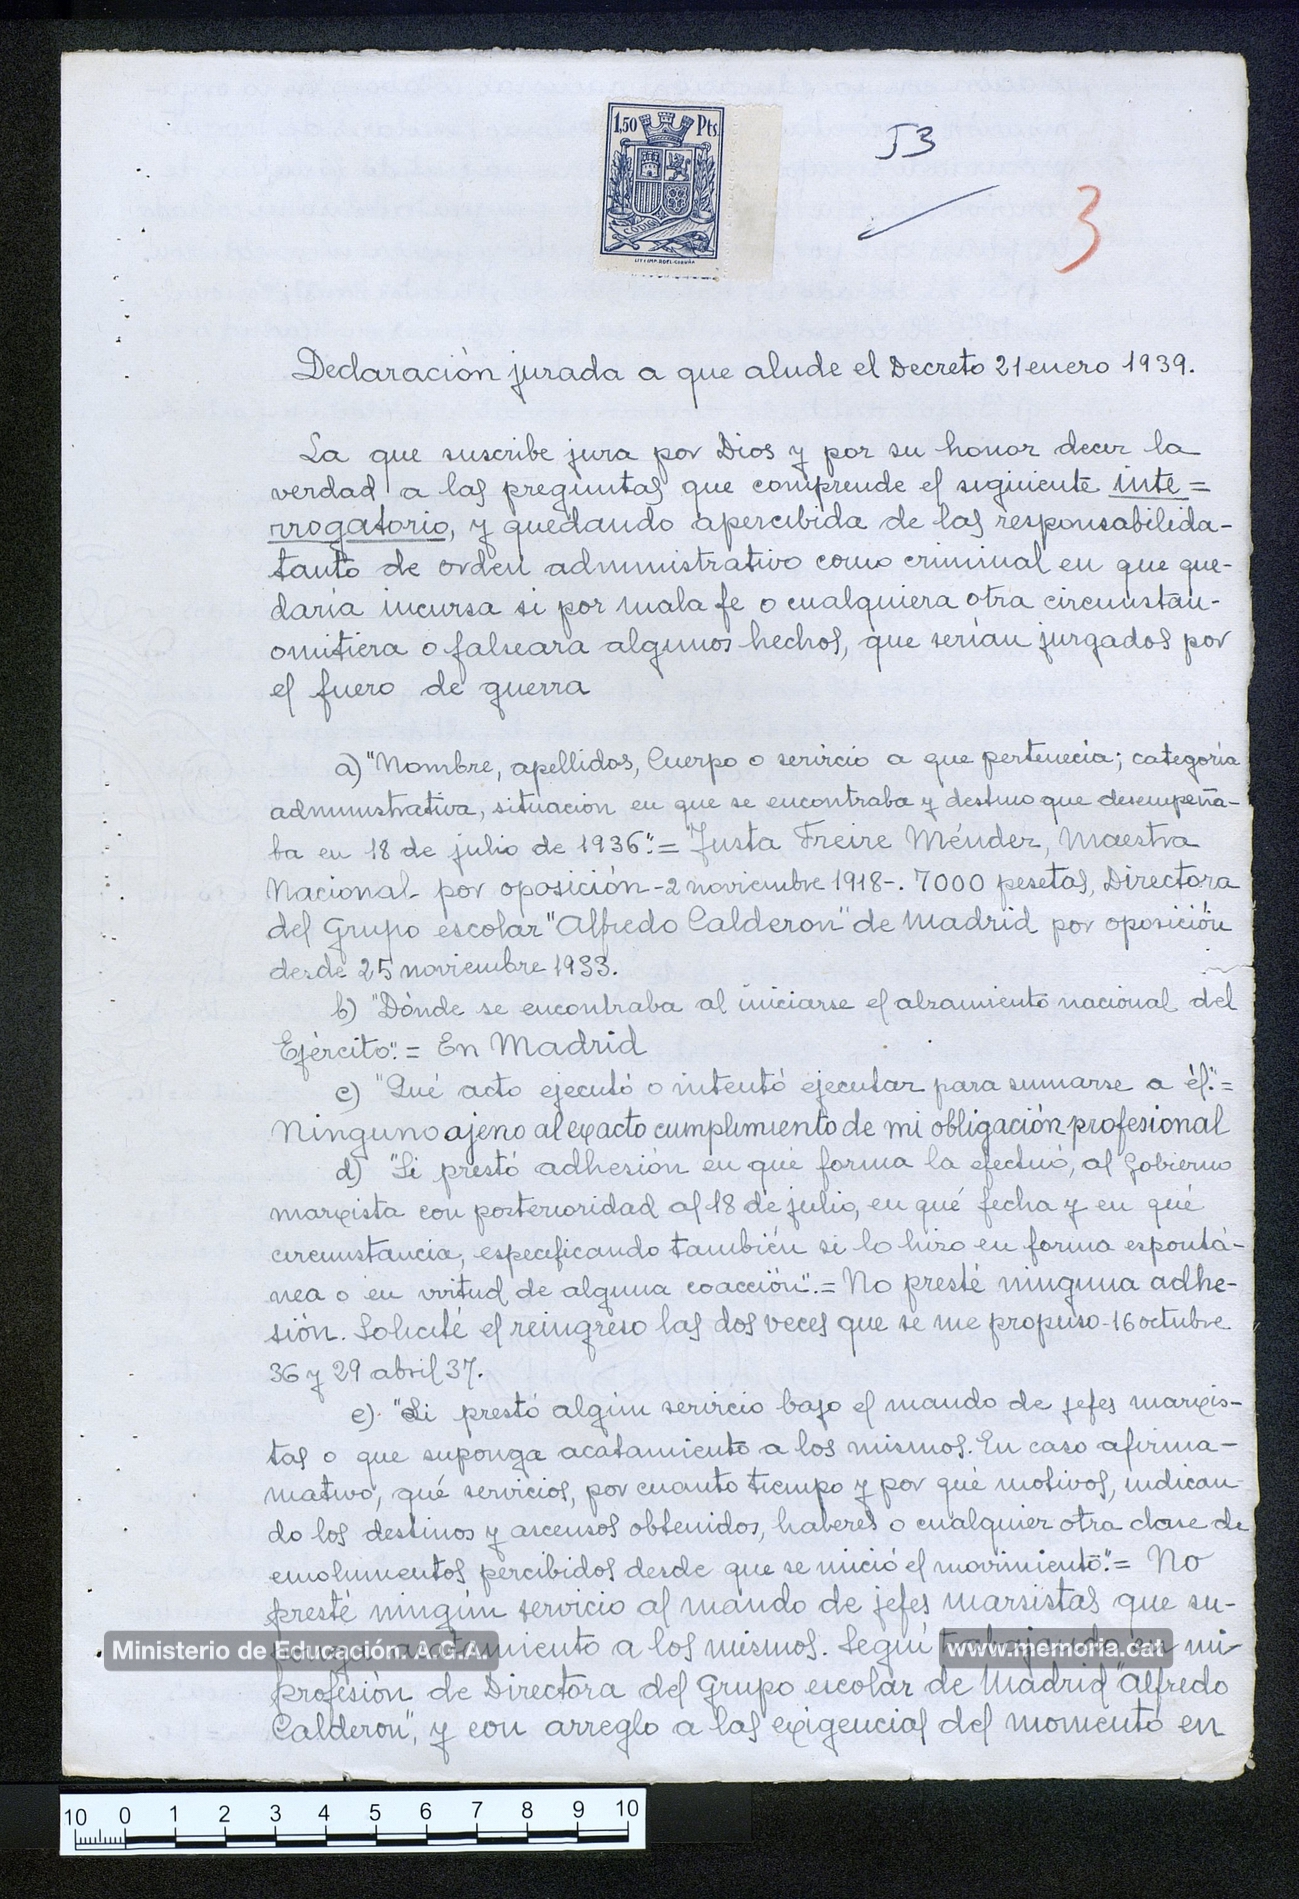 1,50 Pts.
53
3
Declaración jurada a que alude el Decreto 21 enero 1939.
La que suscribe jura por Dios y por su honor decir la
verdad a las preguntas que comprende el siguiente inte=
rrogatorio, y quedando apercibida de las responsabilida-
tanto de orden administrativo como criminal en que que-
daría incursa si por mala fe o cualquiera otra circunstan-
omitiera o falseara algunos hechos, que serían juzgados por
el fuero de guerra
a) "Nombre, apellidos, Cuerpo o servicio a que pertenecía; categoría
administrativa, situación en que se encontraba y destino que desempeña-
ba en 18 de julio de 1936". = Justa Freire Méndez, Maestra
Nacional por oposición -2 noviembre 1918-. 7000 pesetas, Directora
del Grupo escolar "Alfredo Calderon" de Madrid por oposición
desde 25 noviembre 1933.
b) "Dónde se encontraba al iniciarse el alzamiento nacional del
Ejército". = En Madrid
c) "Qué acto ejecutó o intentó ejecutar para sumarse a él". =
Ninguno ajeno al exacto cumplimiento de mi obligación profesional
d) "Si prestó adhesión en qué forma la efectuó, al Gobierno
marxista con posterioridad al 18 de julio, en qué fecha y en qué
circunstancia, especificando también si lo hizo en forma espontá-
nea o en virtud de alguna coacción". = No presté ninguna adhe-
sión. Solicité el reingreso las dos veces que se me propuso -16 octubre
36 y 29 abril 37.
e). "Si prestó algún servicio bajo el mando de jefes marxis-
tas o que suponga acatamiento a los mismos. En caso afirma-
mativo, qué servicios, por cuanto tiempo y por qué motivos, indican-
do los destinos y ascensos obtenidos, haberes o cualquier otra clase de
emolumentos percibidos desde que se inició el movimiento". = No
presté ningún servicio al mando de jefes marsistas que su-
ponga acatamiento a los mismos. Seguí trabajando en mi
profesión de Directora del Grupo escolar de Madrid "Alfredo
Calderon", y con arreglo a las exigencias del momento en
Ministerio de Educación. A.G.A.
www.memoria.cat
10 0 1 2 3 4 5 6 7 8 9 10